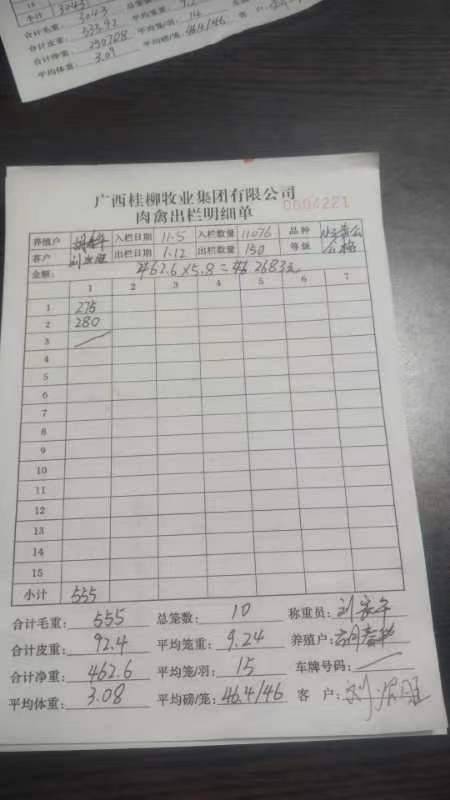 小计 3043
合计毛重: 3043
合计皮重: 555.92 平均笼重:
合计净重: 平均笼/羽: 14
平均体重: 3.09 平均磅/笼: 46.4/46
广西桂柳牧业集团有限公司
肉禽出栏明细单
0604221
养殖户 入栏日期 11.5 入栏数量 11076 品种
客户 出栏日期 1.12 出栏数量 150 等级 合格
金额: 462.6×5.8= 2683元
1 2 3 4 5 6 7
1 275
2 280
3
4
5
6
7
8
9
10
11
12
13
14
15
小计 555
合计毛重: 555 总笼数: 10 称重员:
合计皮重: 92.4 平均笼重: 9.24 养殖户:
合计净重: 462.6 平均笼/羽: 15 车牌号码:
平均体重: 3.08 平均磅/笼: 46.4/46 客 户: